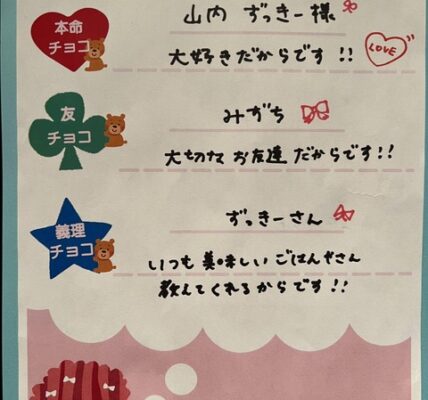 本命
チョコ
山内 ずっきー様
大好きだからです!!
LOVE
友
チョコ
みずち
大切な お友達 だからです!!
義理
チョコ
ずっきーさん
いつも 美味しい ごはんやさん
教えてくれるからです!!